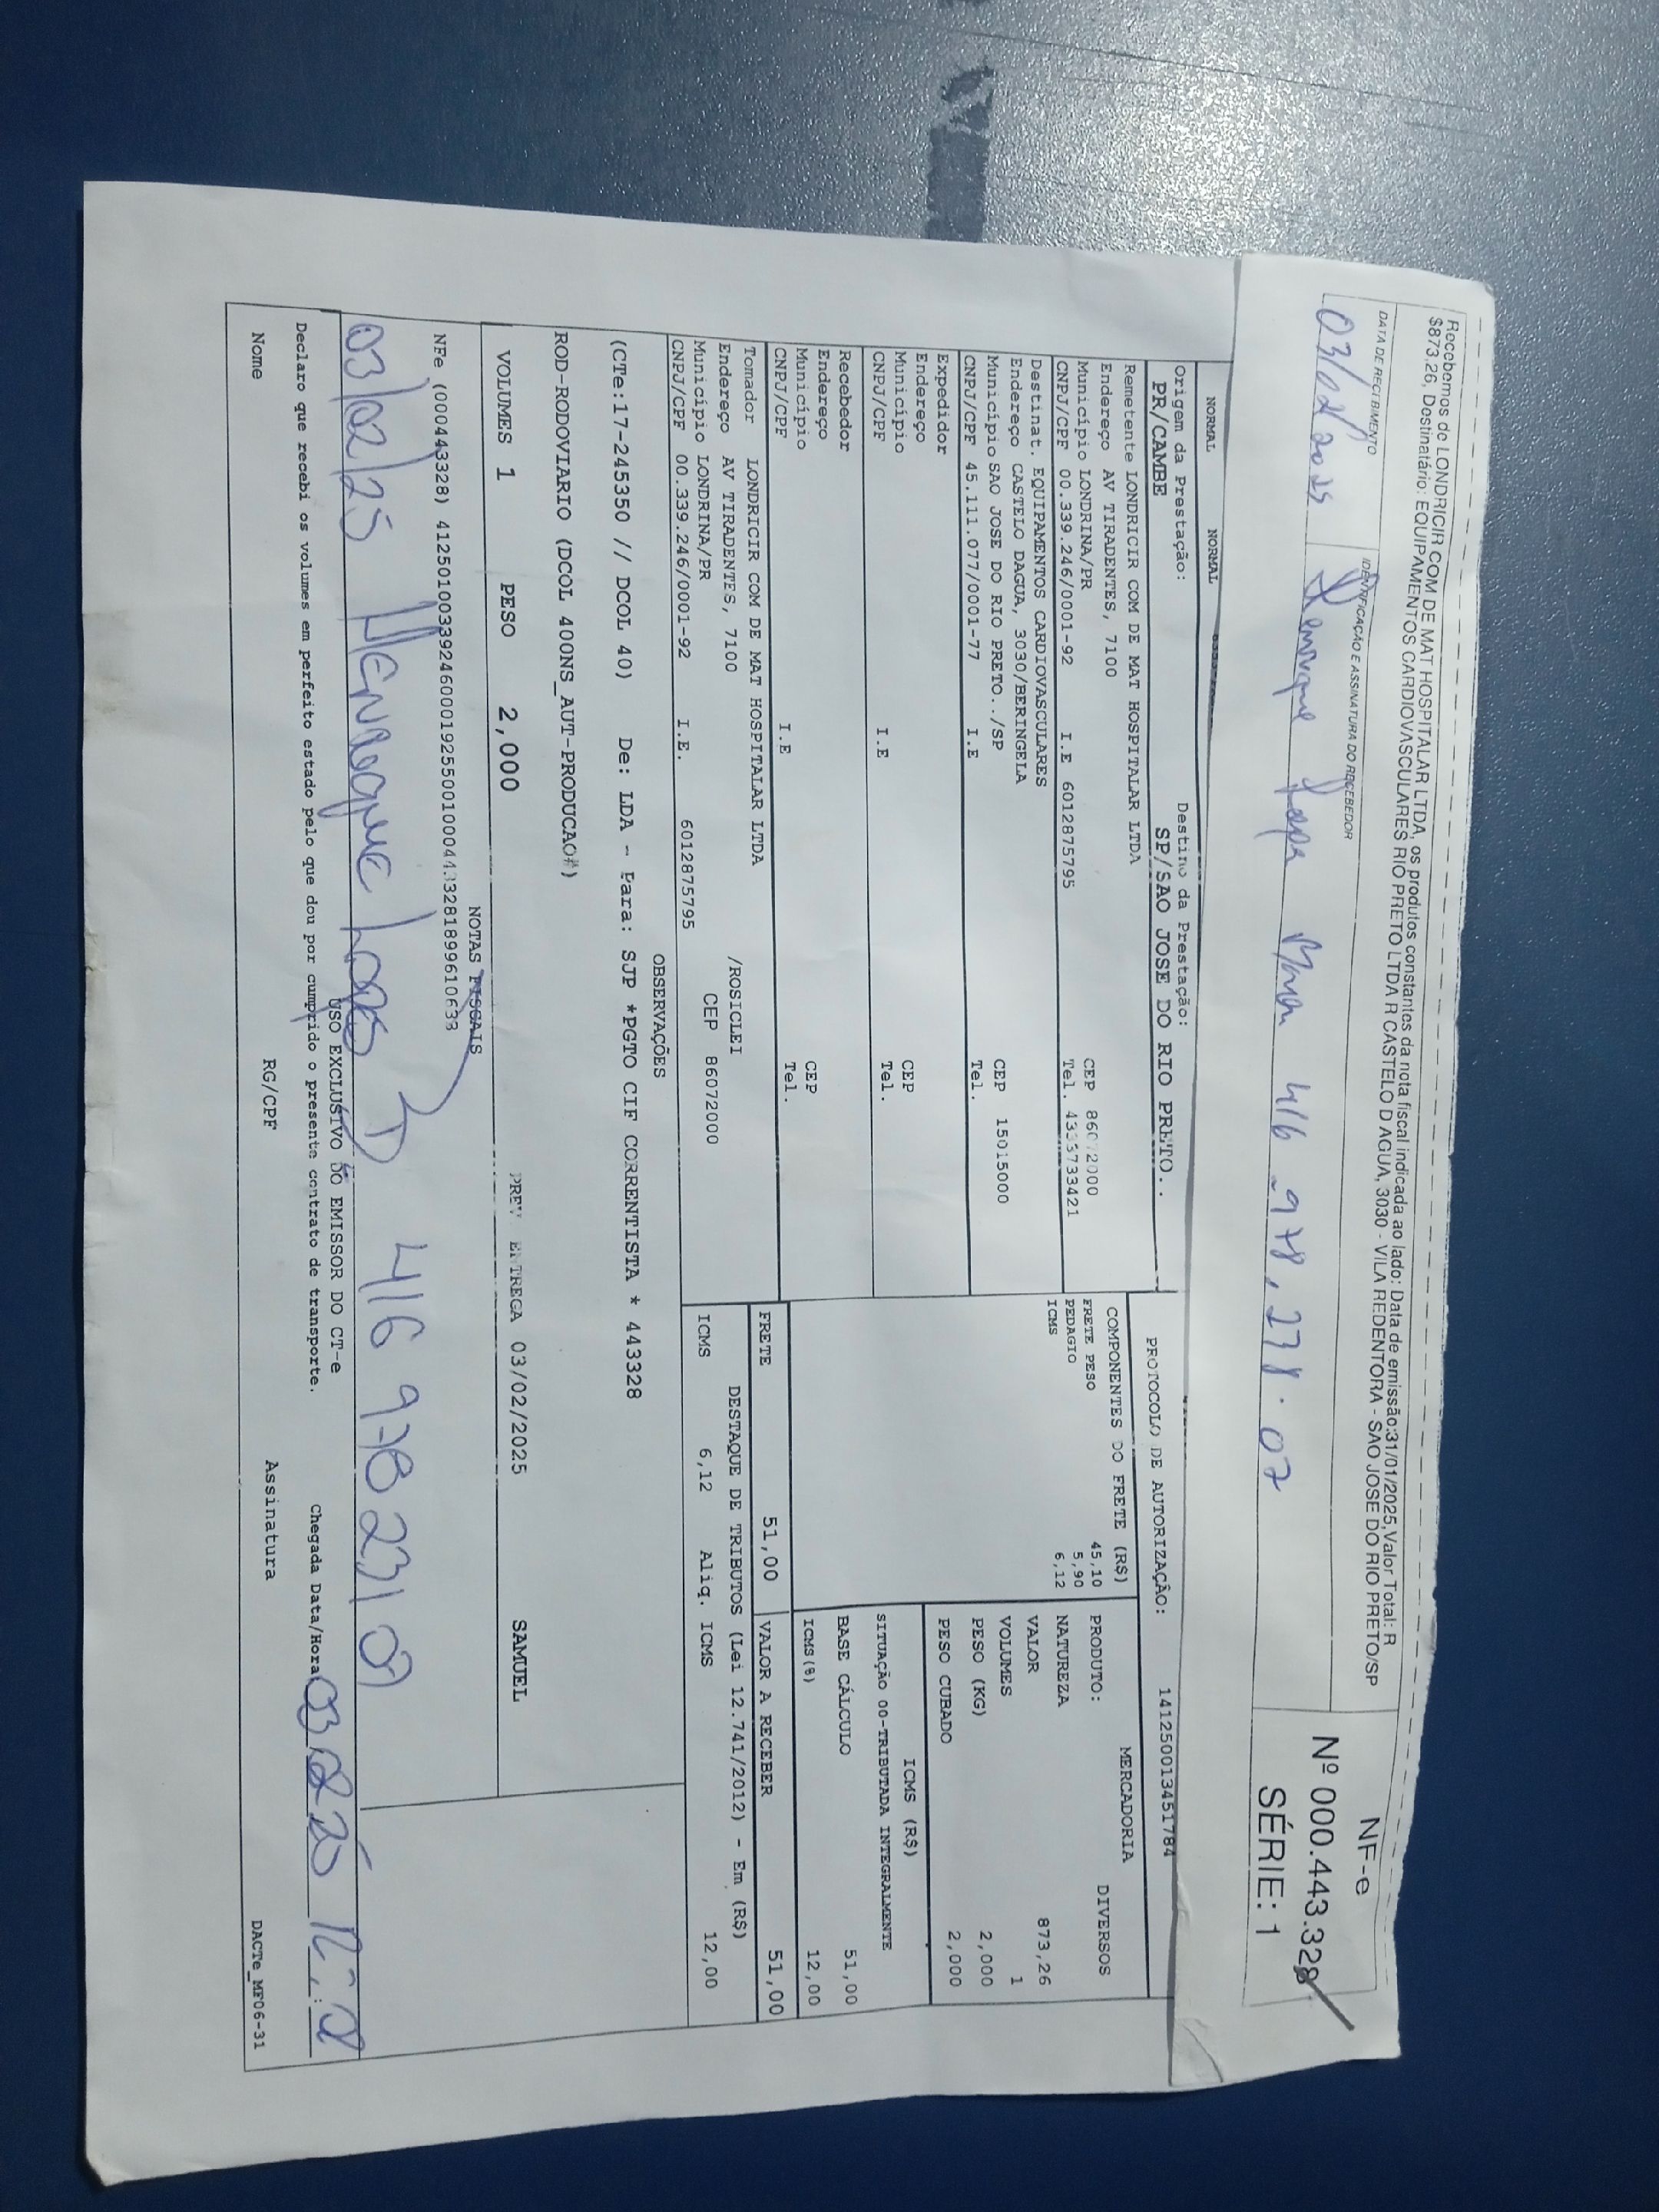 Recebemos de LONDRICIR COM DE MAT HOSPITALAR LTDA, os produtos constantes da nota fiscal indicada ao lado: Data de emissão:31/01/2025,Valor Total: R
$873,26, Destinatário: EQUIPAMENTOS CARDIOVASCULARES RIO PRETO LTDA R CASTELO D AGUA, 3030 - VILA REDENTORA - SAO JOSE DO RIO PRETO/SP
DATA DE RECEBIMENTO
IDENTIFICAÇÃO E ASSINATURA DO RECEBEDOR
03/02/2025
NF-e
Nº 000.443.328
SÉRIE: 1
NORMAL NORMAL
Origem da Prestação:
PR/CAMBE
Destino da Prestação:
SP/SAO JOSE DO RIO PRETO..
PROTOCOLO DE AUTORIZAÇÃO: 141250013451784
Remetente LONDRICIR COM DE MAT HOSPITALAR LTDA
Endereço AV TIRADENTES, 7100
Município LONDRINA/PR CEP
CNPJ/CPF 00.339.246/0001-92 I.E 6012875795 Tel.
Destinat. EQUIPAMENTOS CARDIOVASCULARES
Endereço CASTELO DAGUA, 3030/BERINGELA
Município SAO JOSE DO RIO PRETO../SP CEP 15015000
CNPJ/CPF 45.111.077/0001-77 I.E Tel.
Expedidor
Endereço
Município CEP
CNPJ/CPF I.E Tel.
Recebedor
Endereço
Município CEP
CNPJ/CPF I.E Tel.
Tomador LONDRICIR COM DE MAT HOSPITALAR LTDA
Endereço AV TIRADENTES, 7100 /ROSICLEI
Município LONDRINA/PR CEP 86072000
CNPJ/CPF 00.339.246/0001-92 I.E. 6012875795
COMPONENTES DO FRETE (R$)
FRETE PESO 45,10
PEDAGIO 5,90
ICMS 6,12
MERCADORIA
PRODUTO: DIVERSOS
NATUREZA
VALOR 873,26
VOLUMES 1
PESO (KG) 2,000
PESO CUBADO 2,000
ICMS (R$)
SITUAÇÃO 00-TRIBUTADA INTEGRALMENTE
BASE CÁLCULO 51,00
ICMS(%) 12,00
FRETE 51,00 VALOR A RECEBER 51,00
DESTAQUE DE TRIBUTOS (Lei 12.741/2012) - Em (R$)
ICMS 6,12 Aliq. ICMS 12,00
OBSERVAÇÕES
(CTe:17-245350 // DCOL 40) De: LDA - Para: SJP *PGTO CIF CORRENTISTA * 443328
ROD-RODOVIARIO (DCOL 400NS_AUT-PRODUCAO#)
VOLUMES 1 PESO 2,000 PREV ENTREGA 03/02/2025 SAMUEL
NOTAS FISCAIS
NFe (000443328)
03/02/25 Henrique Lopes
USO EXCLUSIVO DO EMISSOR DO CT-e
Declaro que recebi os volumes em perfeito estado pelo que dou por cumprido o presente contrato de transporte. Chegada Data/Hora
Nome RG/CPF Assinatura DACTe_MF06-31